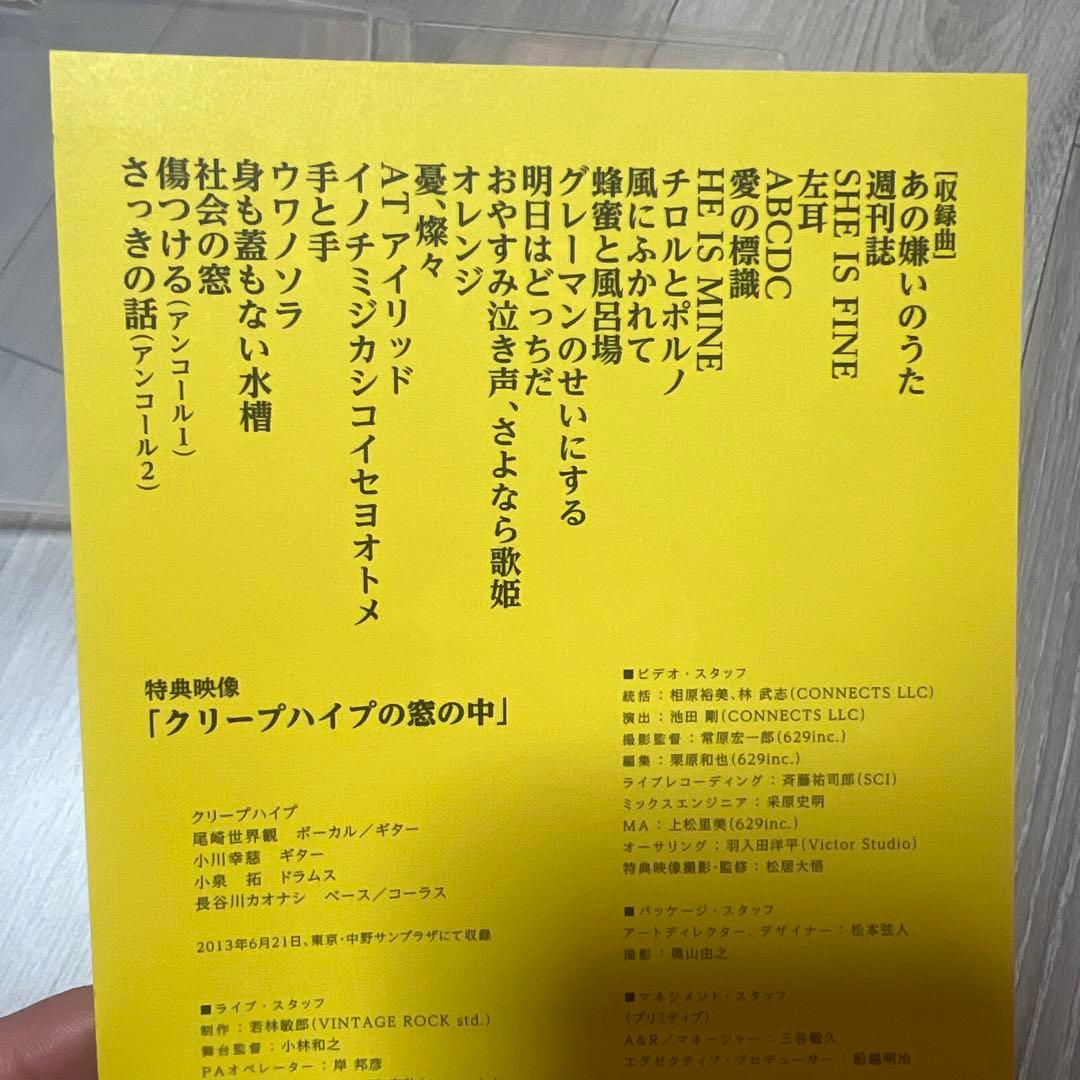 [収録曲]
あの嫌いのうた
週刊誌
SHE IS FINE
左耳
ABCDC
愛の標識
HE IS MINE
チロルとポルノ
風にふかれて
蜂蜜と風呂場
グレーマンのせいにする
明日はどっちだ
おやすみ泣き声、さよなら歌姫
オレンジ
憂、燦々
ATアイリッド
イノチミジカシコイセヨオトメ
手と手
ウワノソラ
身も蓋もない水槽
社会の窓
傷つける(アンコール1)
さっきの話(アンコール2)
特典映像
「クリープハイプの窓の中」
クリープハイプ
尾崎世界観 ボーカル／ギター
小川幸慈 ギター
小泉 拓 ドラムス
長谷川カオナシ ベース／コーラス
2013年6月21日、東京・中野サンプラザにて収録
■ライブ・スタッフ
制作：若林敏郎(VINTAGE ROCK std.)
舞台監督：小林和之
PAオペレーター：岸 邦彦
■ビデオ・スタッフ
統括：相原裕美、林 武志(CONNECTS LLC)
演出：池田 剛(CONNECTS LLC)
撮影監督：常原宏一郎(629inc.)
編集：栗原和也(629inc.)
ライブレコーディング：斉藤祐司郎(SCI)
ミックスエンジニア：采原史明
MA：上松里美(629inc.)
オーサリング：羽入田洋平(Victor Studio)
特典映像撮影・監修：松居大悟
■パッケージ・スタッフ
アートディレクター、デザイナー：松本弦人
撮影：奥山由之
■マネジメント・スタッフ
〈プリミティブ〉
A&R／マネージャー：三谷敏久
エグゼクティブ・プロデューサー：船越明治